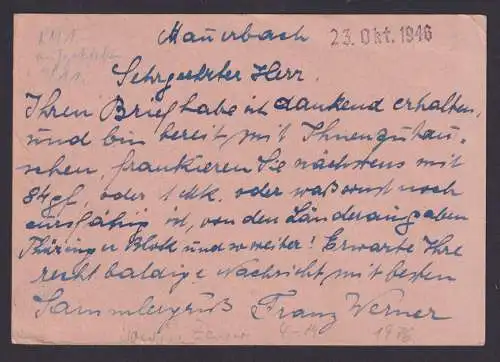 Mauerbach 23. Okt. 1946
Sehrgeehrter Herr.
Ihren Brief habe ich dankend erhalten,
und bin bereit mit Ihnen zu tau-
schen, frankieren Sie nächstens mit
84 pf, oder 1 Mk. oder was sonst noch
ist, von den Länderausgaben
Thüringer Block und so weiter! Erwarte Ihre
recht baldige Nachricht mit besten
Sammlergruß Franz Werner
1976